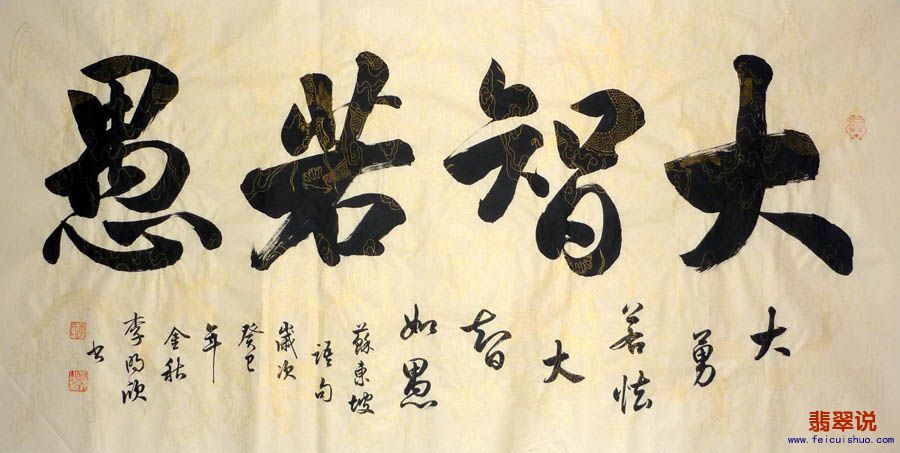 大智若愚
大
勇
若怯
大
智
如愚
蘇東坡
語句
歲次
癸巳
年
金秋
李
书
翡翠说
www.feicuishuo.com